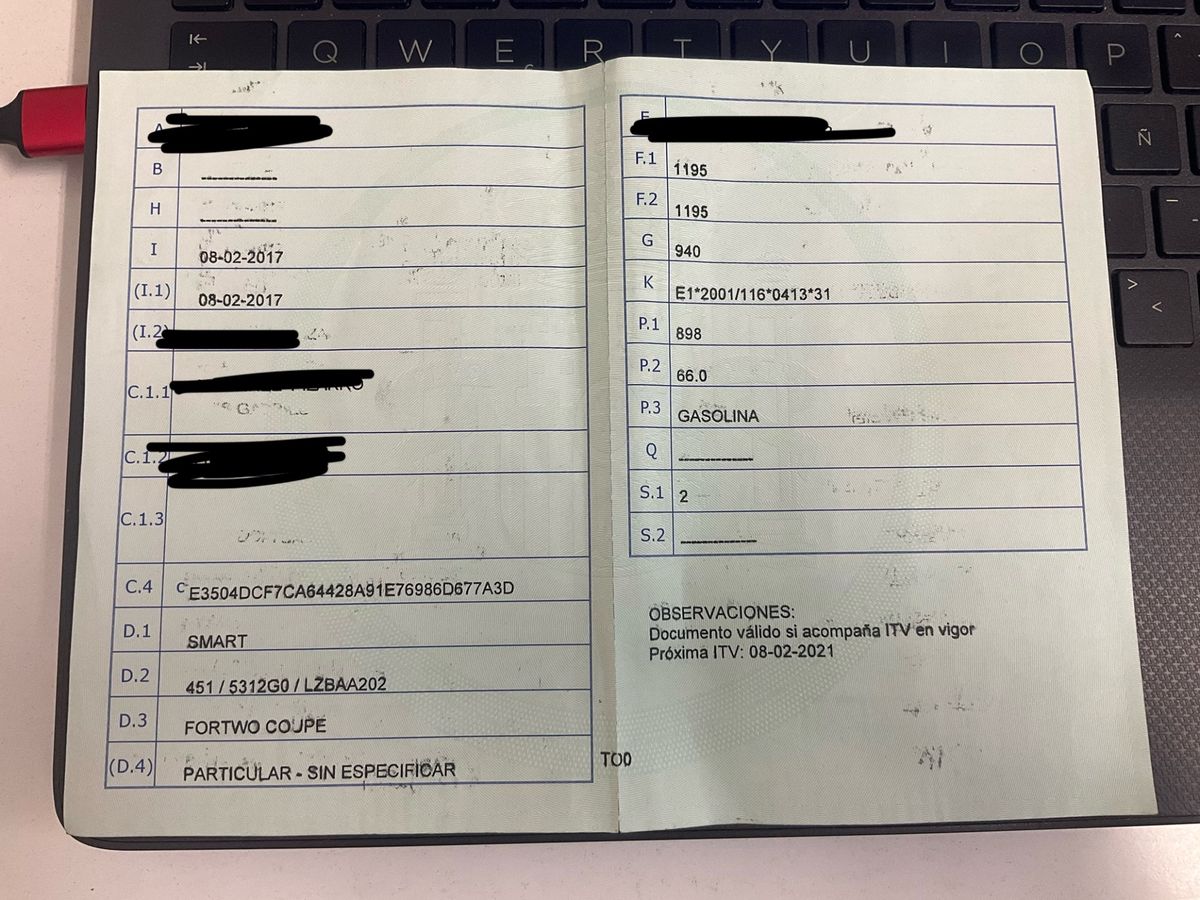 Q W E R T Y U I O P
Ñ
>
<
A
B ------------
H ------------
I 08-02-2017
(I.1) 08-02-2017
(I.2)
C.1.1
C.1.2
C.1.3
C.4 C E3504DCF7CA64428A91E76986D677A3D
D.1 SMART
D.2 451 / 5312G0 / LZBAA202
D.3 FORTWO COUPE
(D.4) PARTICULAR - SIN ESPECIFICAR
TO0
E
F.1 1195
F.2 1195
G 940
K E1*2001/116*0413*31
P.1 898
P.2 66.0
P.3 GASOLINA
Q ------------
S.1 2
S.2 ------------
OBSERVACIONES:
Documento válido si acompaña ITV en vigor
Próxima ITV: 08-02-2021